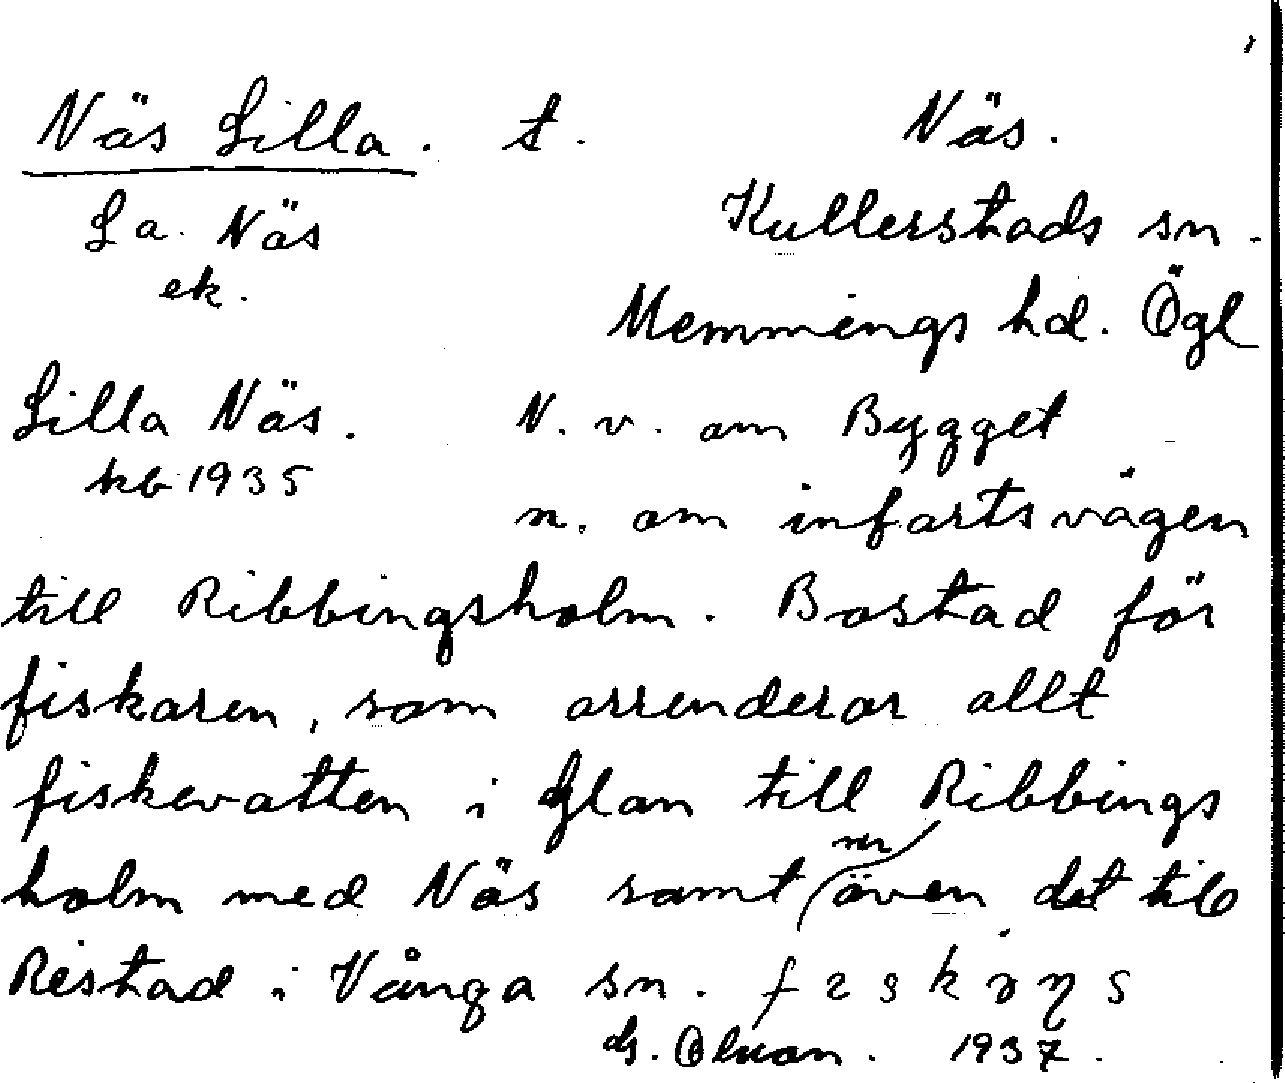 Näs Lilla. t. Näs.
La. Näs Kullerstads sn.
ek.
Memmings hd. Ögl
Lilla Näs. N. v. om Bygget
kb 1935
n. om infartsvägen
till Ribbingsholm. Bostad för
fiskaren, som arrenderar allt
fiskevatten i Glan till Ribbings
holm med Näs samt nu även det till
Ristad i Vånga sn.
G. 1937.